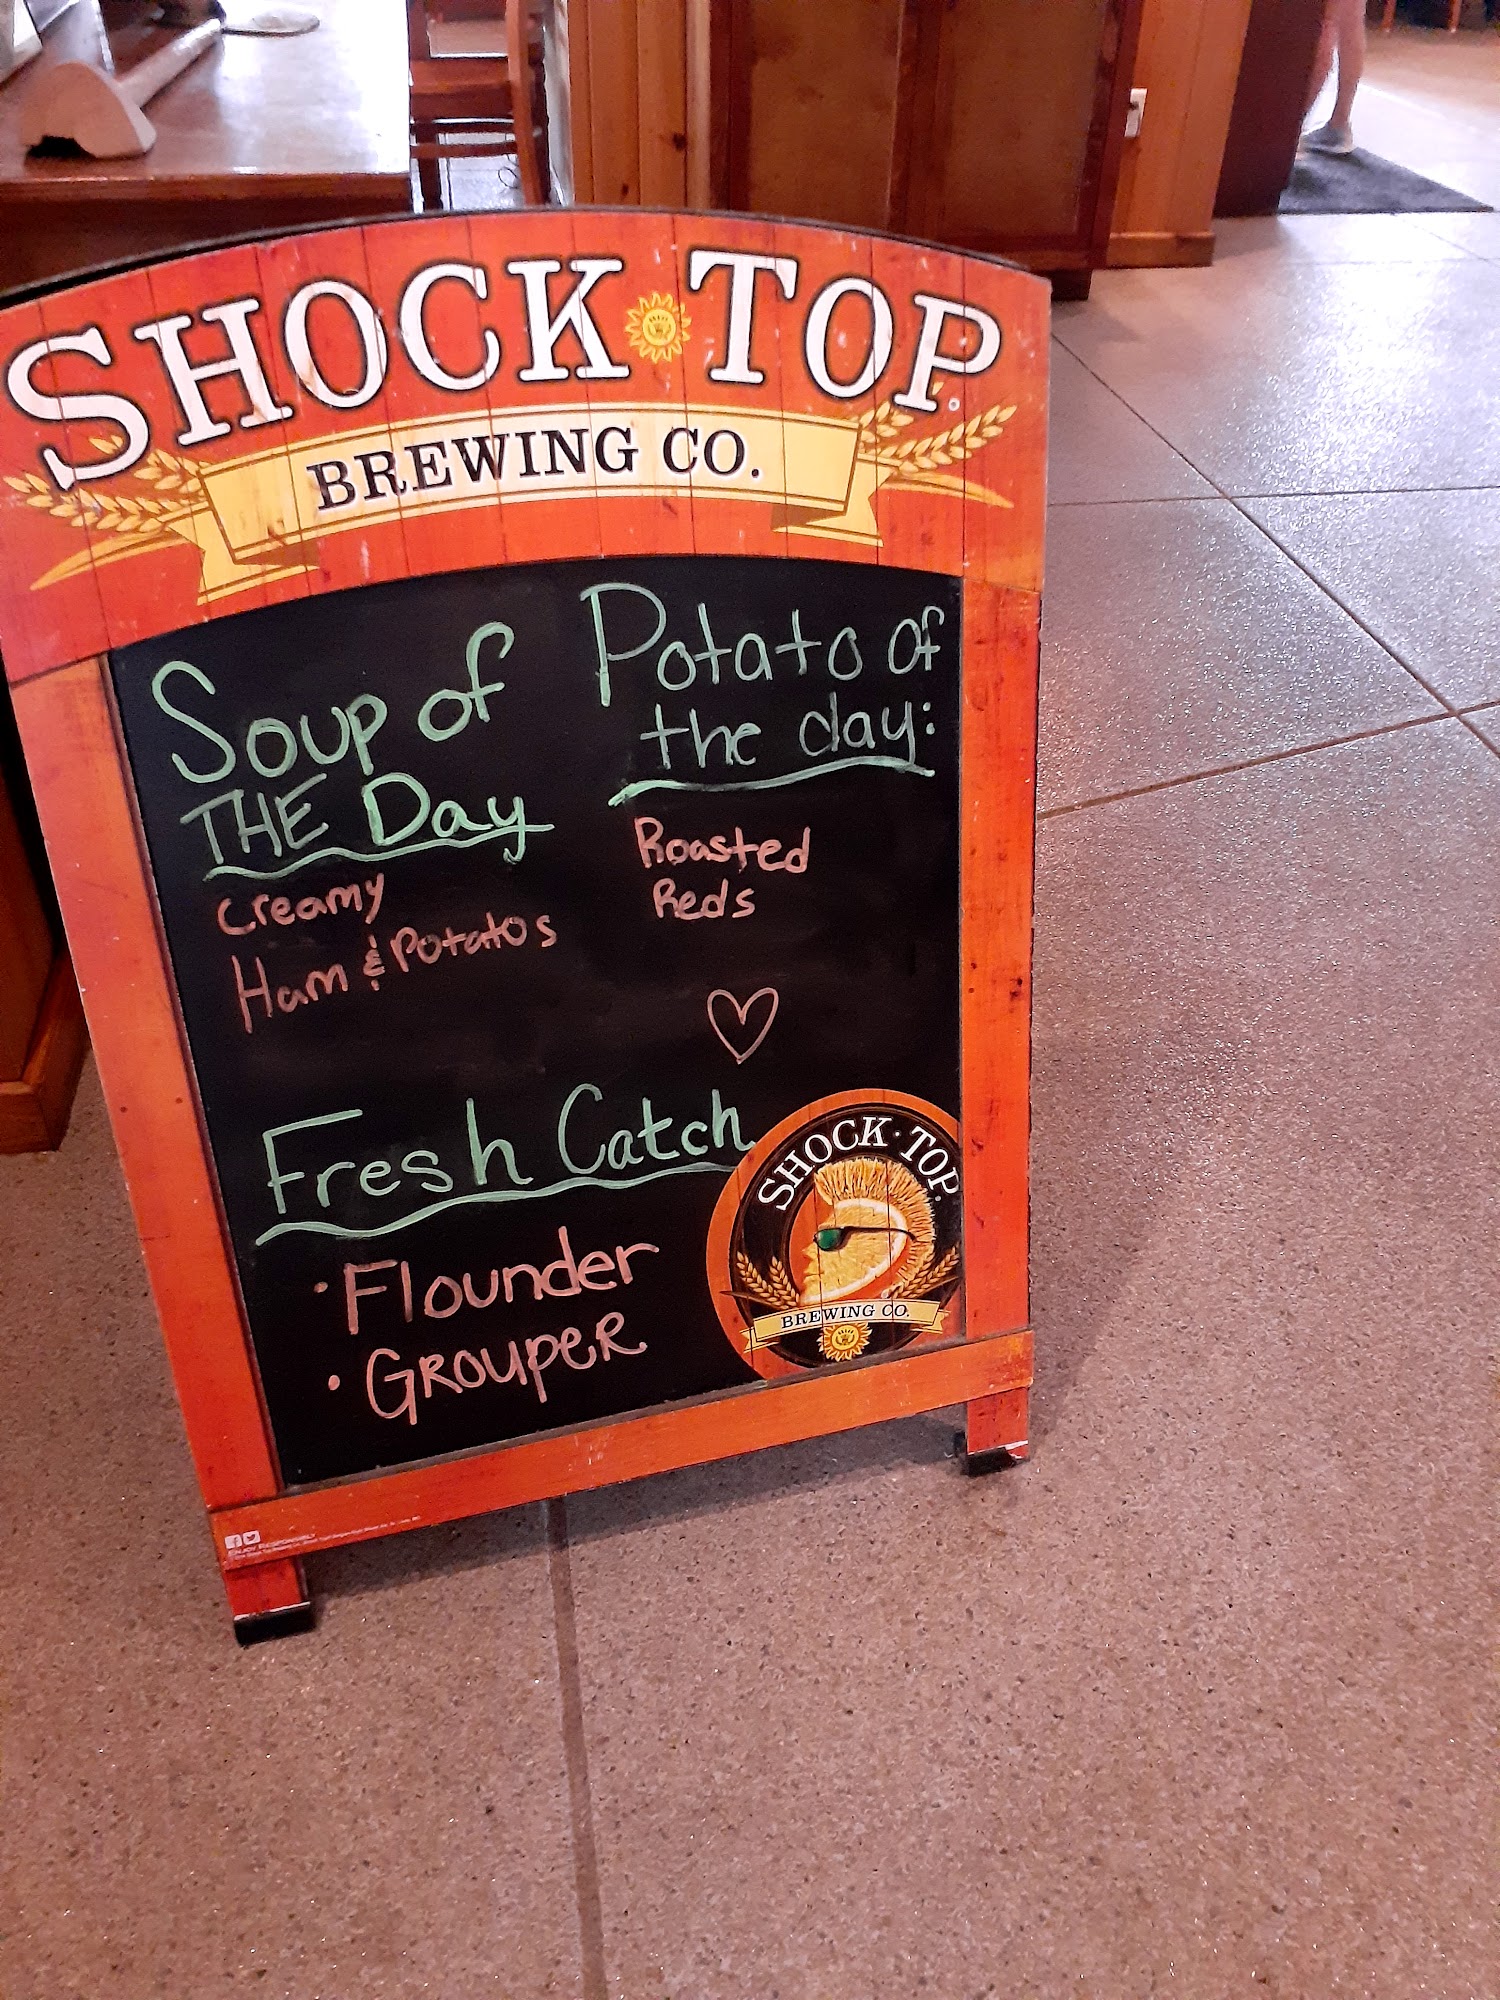 SHOCK TOP
BREWING CO.
Soup of
THE Day
Creamy
Ham & Potatos
Potato of
the day:
Roasted
Reds
Fresh Catch
· Flounder
· GROUPER
SHOCK·TOP
BREWING CO.
ENJOY RESPONSIBLY